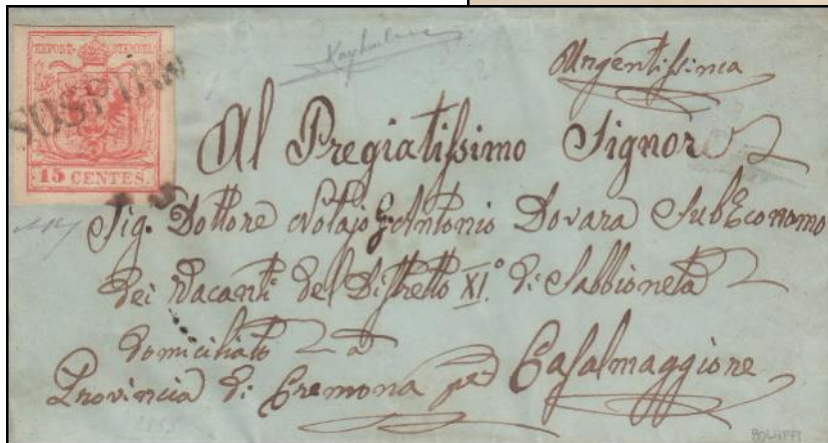 KKPOST-STEMPEL
15 CENTES.
SOSPIRO
Urgentissima
Al Pregiatissimo Signore
Sig. Dottore Notajo G. Antonio Dovara SubEconomo
dei Vacanti del Distretto XI.° di Sabbioneta
domiciliato a
Provincia di Cremona per Casalmaggiore